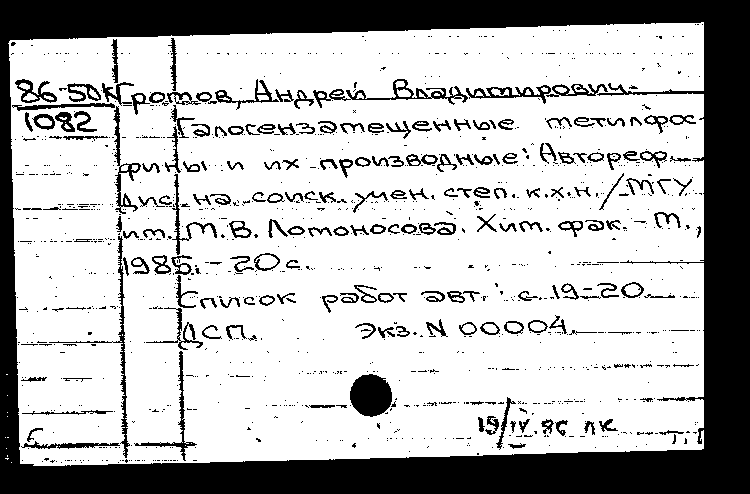 86-50К Громов, Андрей Владимирович.
1082 Галогензамещенные метилфос-
фины и их производные: Автореф.
дис. на соиск. учен. степ. к.х.н. / МГУ
им. М.В. Ломоносова. Хим. фак. - М.,
1985. - 20 с.
Список работ авт.: с. 19-20
ДСП. Экз. N 00004.
19/IV.86 ПК